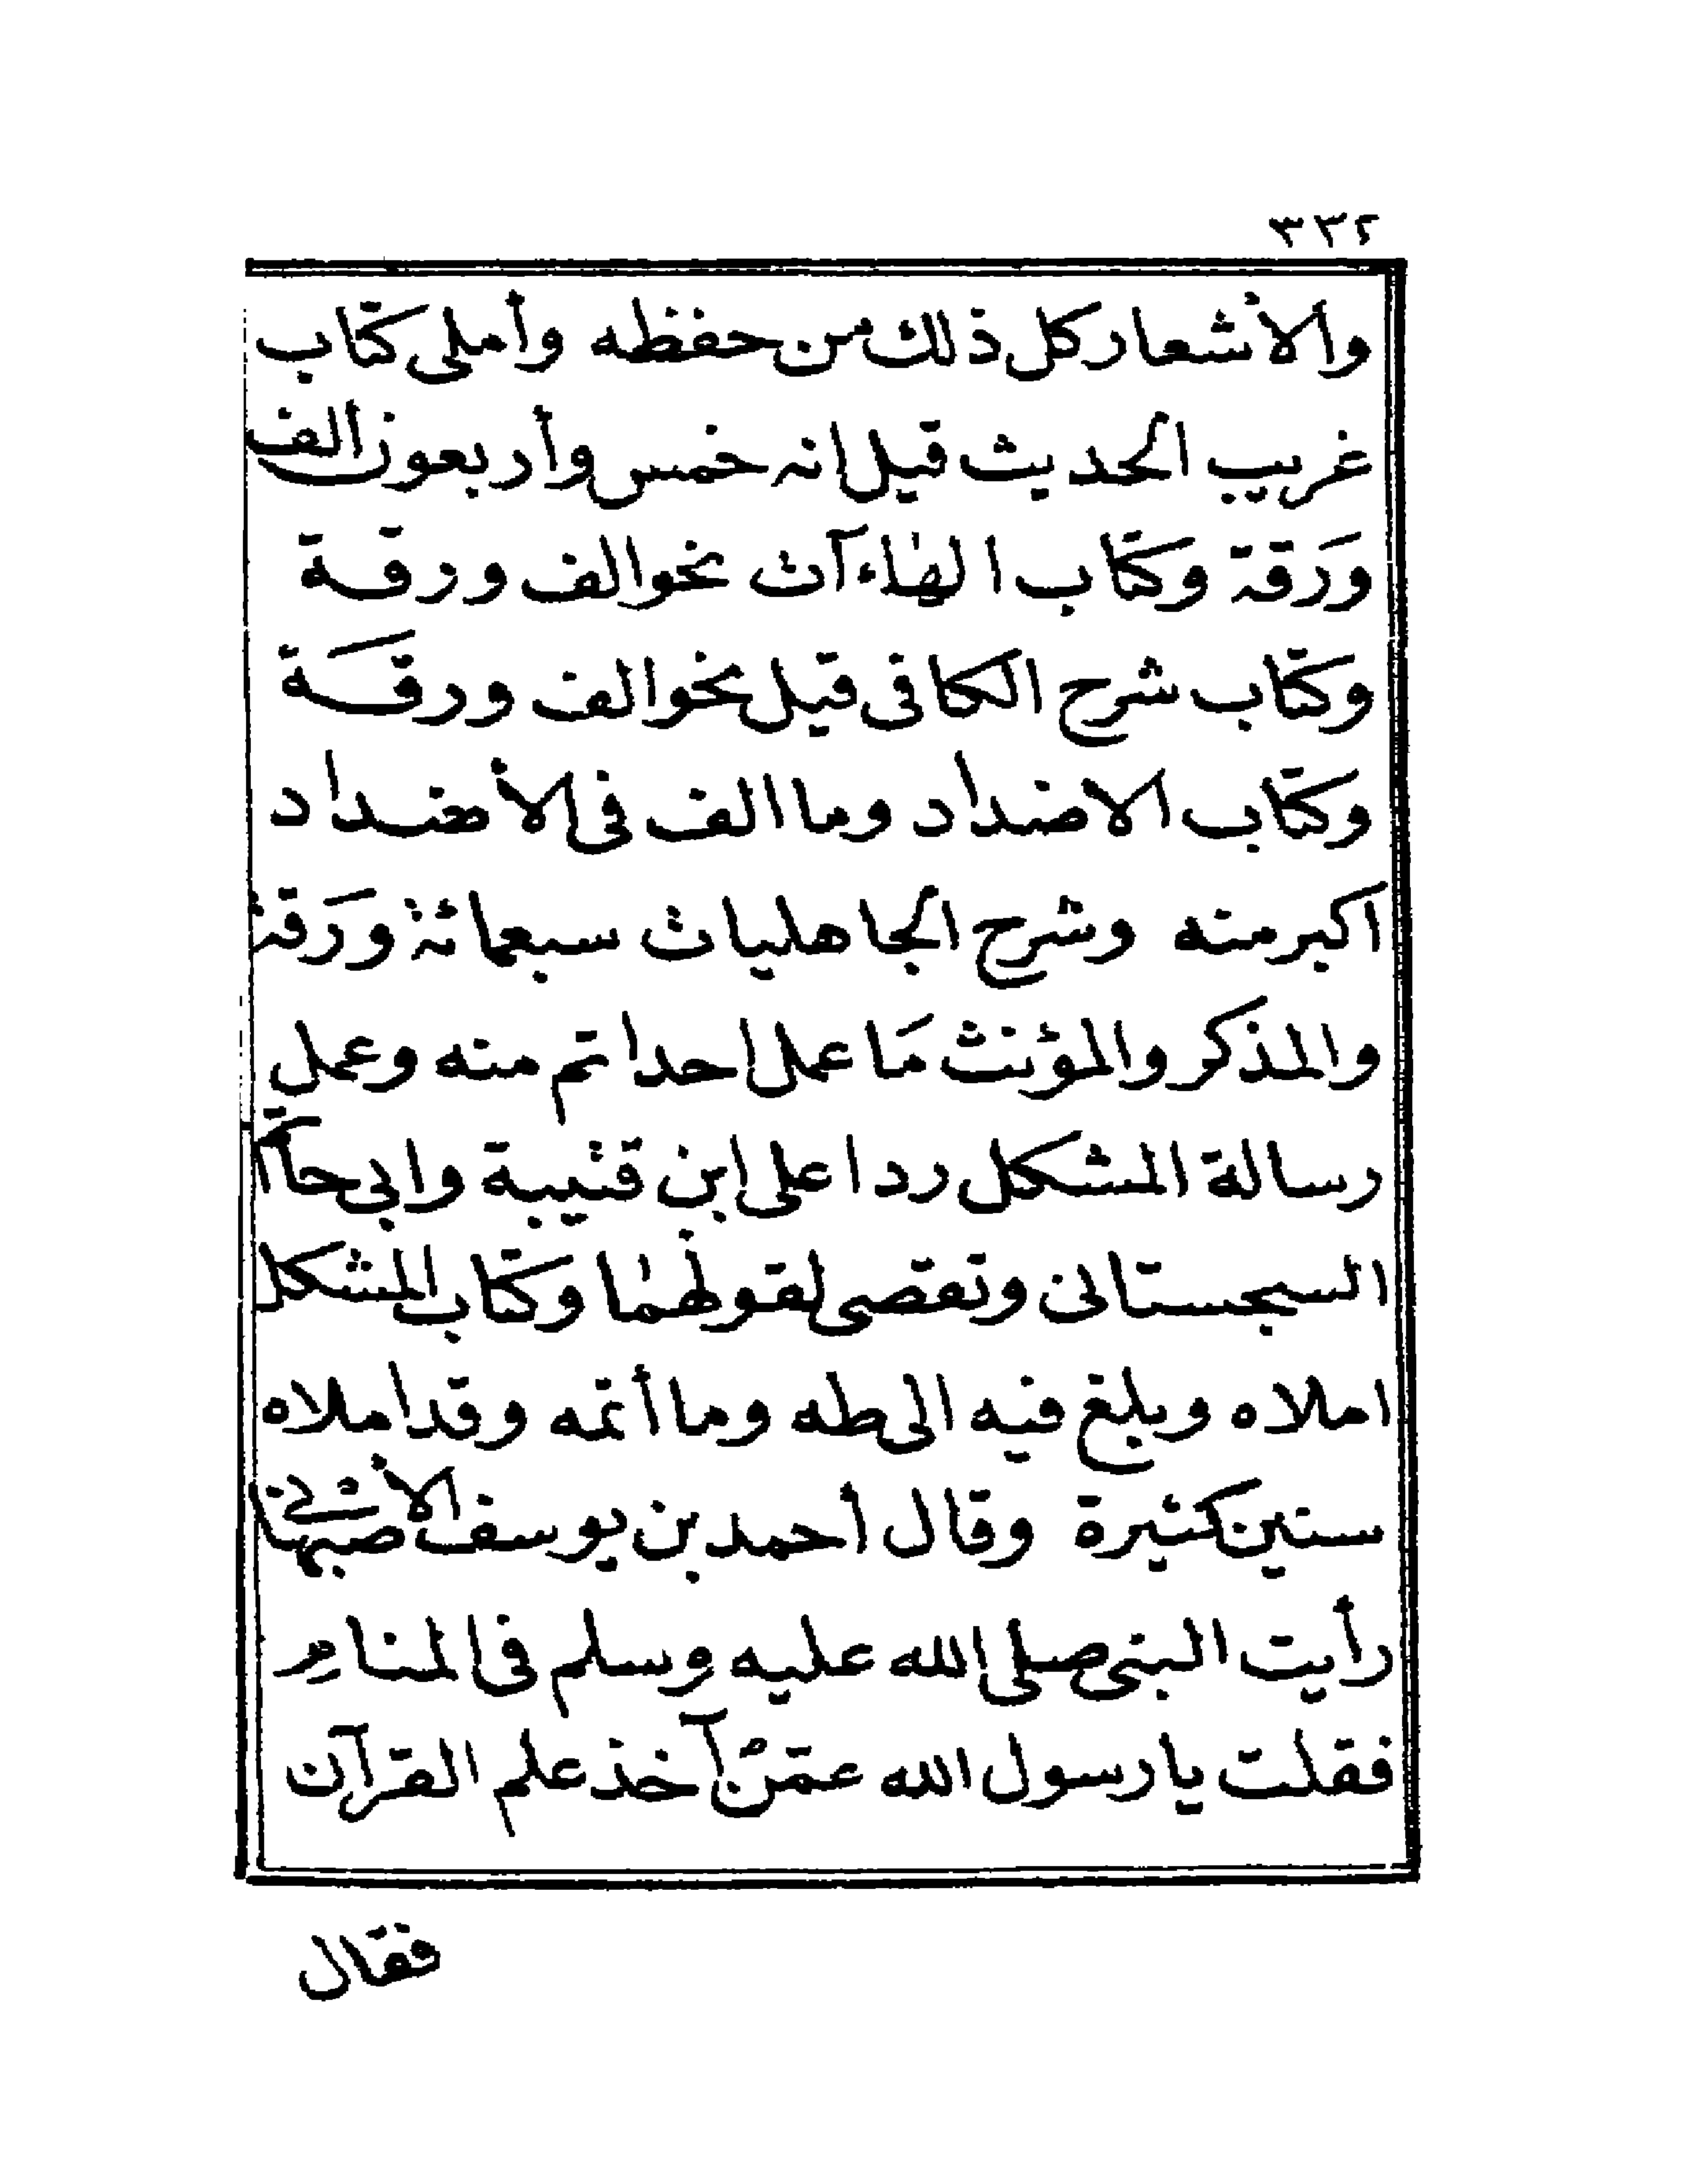 ٣٣٢
والأشعار كل ذلك من حفظه وأملى كتاب
غريب الحديث قيل انه خمس وأربعون ألف
وَرَقة وكتاب الهاءآت نحو الف ورقة
وكتاب شرح الكافى قيل نحو الف ورقَة
وكتاب الاضداد وما الف فى الأضداد
اكبر منه وشرح الجاهليات سبعمائة ورَقة
والمذكر والمؤنث مَا عمل احد اتم منه وعمل
رسالة المشكل ردا على ابن قتيبة وابى حاتم
السجستانى ونقصى لقولهما وكتاب المشكل
املاه وبلغ فيه الى طه وما أتمه وقد املاه
سنين كثيرة وقال أحمد بن يوسف الأصبهانى
رأيت النبى صلى الله عليه وسلم فى المنام
فقلت يا رسول الله عمّن آخذ علم القرآن
فقال